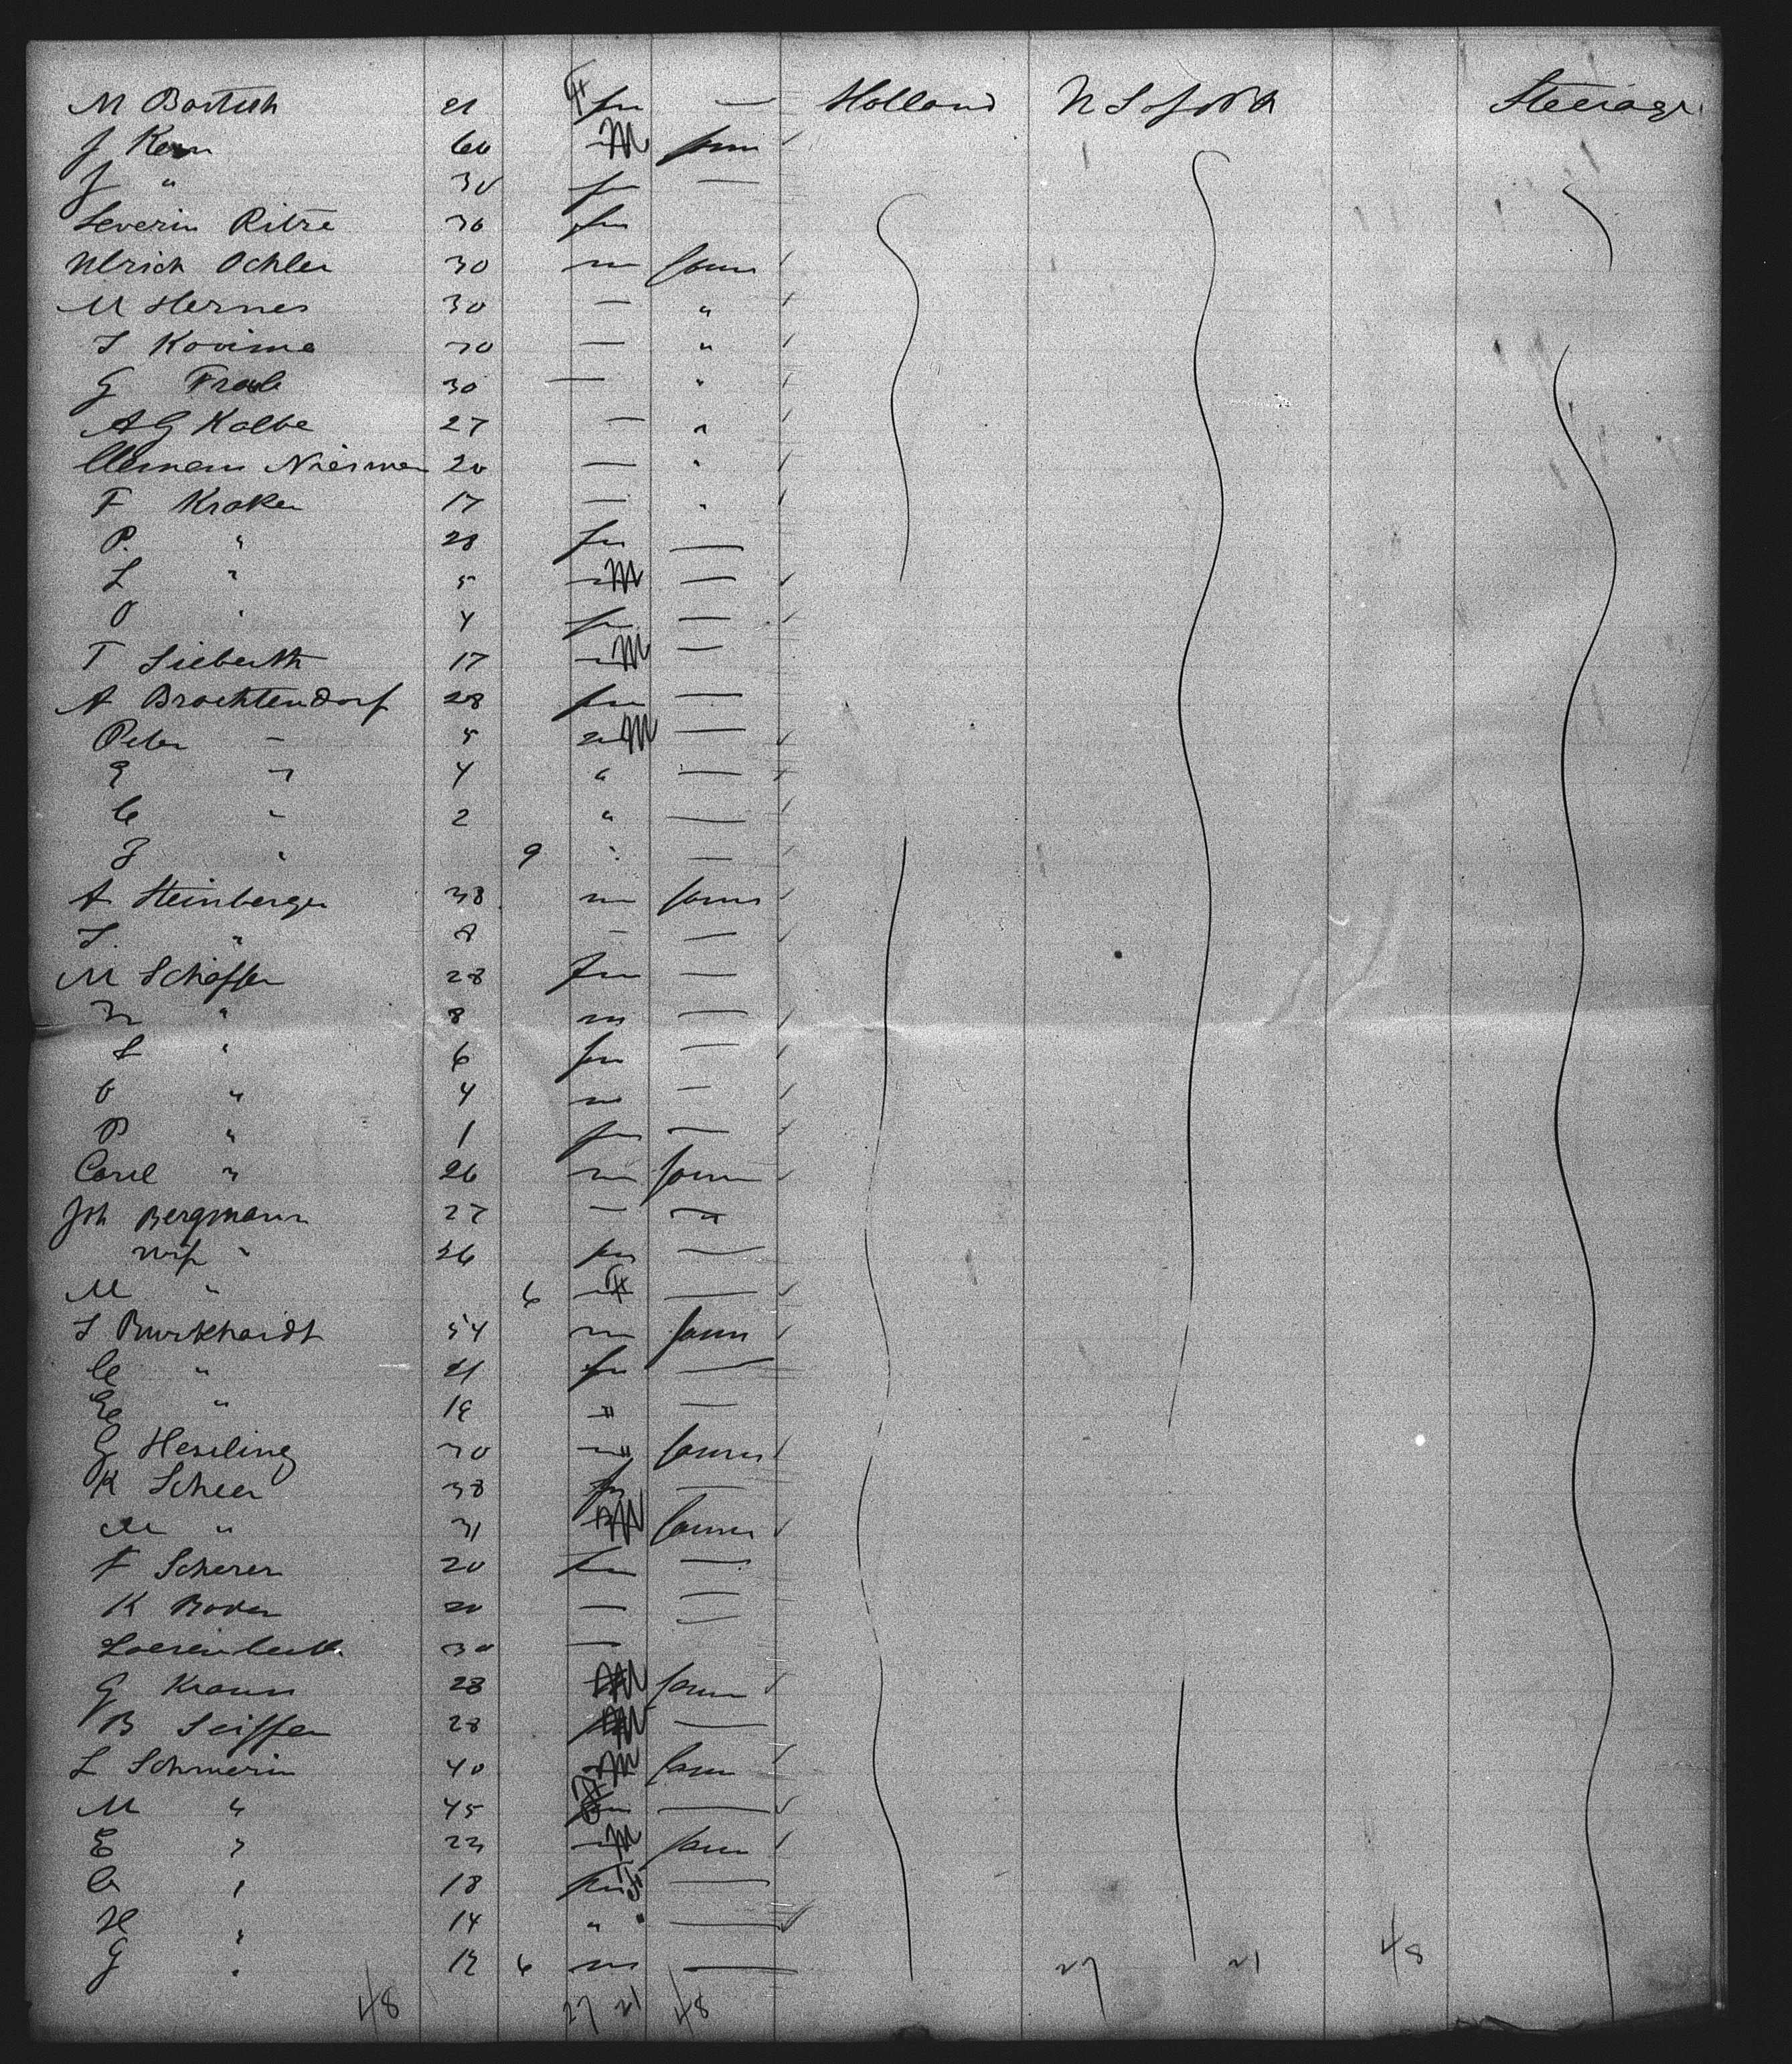 M Bartsch 21 F fm — Holland U S of N A Steerage
J Kern 60 M farm
J " 30 fm —
Severin Ritze 36 fm
Ulrich Ochler 30 m farm
M Hernes 30 — "
J Kovima 30 — "
G 30 — "
A G Kolbe 27 — "
Clemens Niesmen 20 — "
F Kroker 17 — "
P. " 28 fm —
L " 5 M —
O " 4 fm —
T Sieberth 17 M —
A Brochtendorf 28 fm —
Peter " 5 M —
" 4 " —
C " 2 " —
J " 9 " —
A Steinberger 38 m farm
S. " 8 — —
M Schäffer 28 fm —
" 8 m —
L " 6 fm —
O " 4 m —
P " 1 fm —
Carl " 26 m farm
Joh Bergmann 27 — "
wife " 26 fm —
M " 6 F —
J Burkhardt 54 m farm
C " 21 fm —
" 19 " —
G Hesling 30 m farm
K Scheer 38 fm —
M " 31 M farm
F Scherer 20 fm —
K Boden 20 — —
30 —
G Kraus 28 M farm
B Seiffer 28 M —
L Schmerin 40 M farm
M " 45 F —
E " 22 M farm
C " 18 fm F —
H " 14 " —
G " 12 6 m — 27 21 48
48 27 21 48